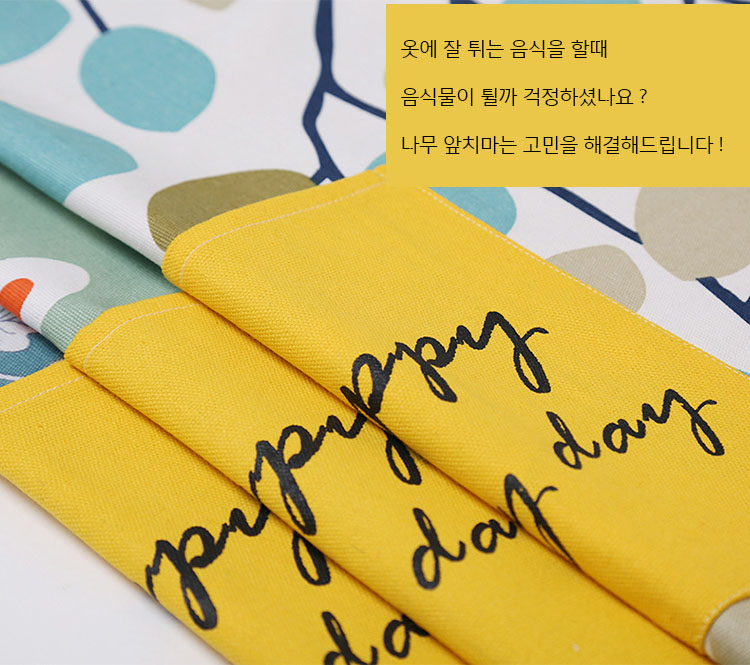 옷에 잘 튀는 음식을 할때
음식물이 튈까 걱정하셨나요 ?
나무 앞치마는 고민을 해결해드립니다 !
ppy
day
ppy
day
ppy
day